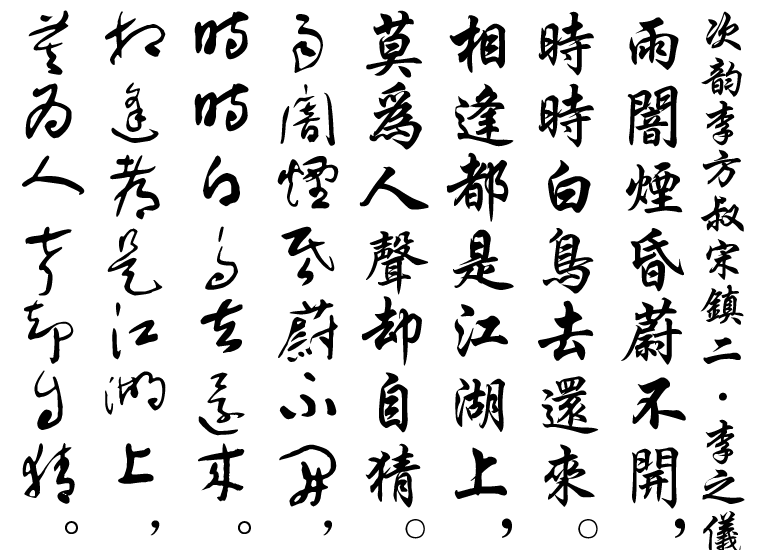 次韵李方叔宋鎮二・李之儀
雨闇煙昏蔚不開，
時時白鳥去還來。
相逢都是江湖上，
莫爲人聲却自猜。
雨闇煙昏蔚不開，
時時白鳥去還來。
相逢都是江湖上，
莫爲人聲却自猜。